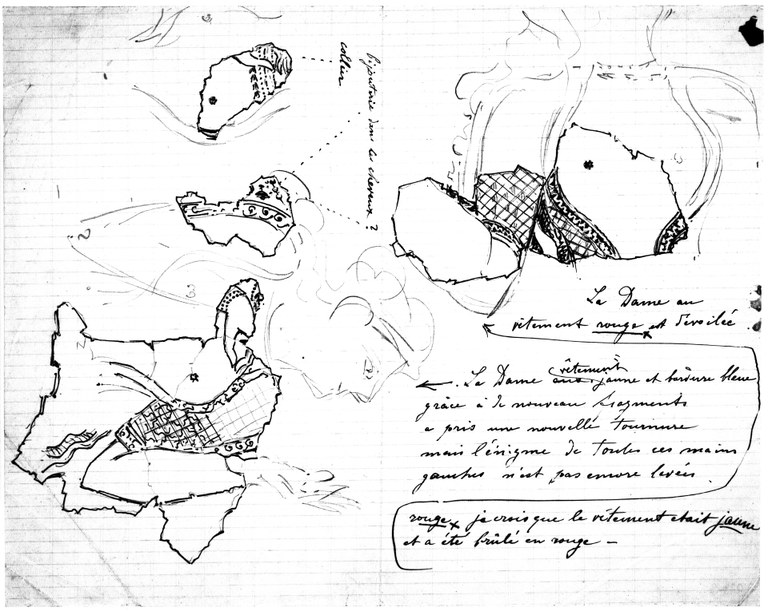 Bijouterie dans les cheveux ?
collier
La Dame au
vêtement rouge est dévoilée
La Dame aux vêtement jaune et bordure bleue
grâce à de nouveau fragments
a pris une nouvelle tournure
mais l'énigme de toutes ces mains
gauches n'est pas encore levée.
rouge x je crois que le vêtement était jaune
et a été brûlé en rouge –
?